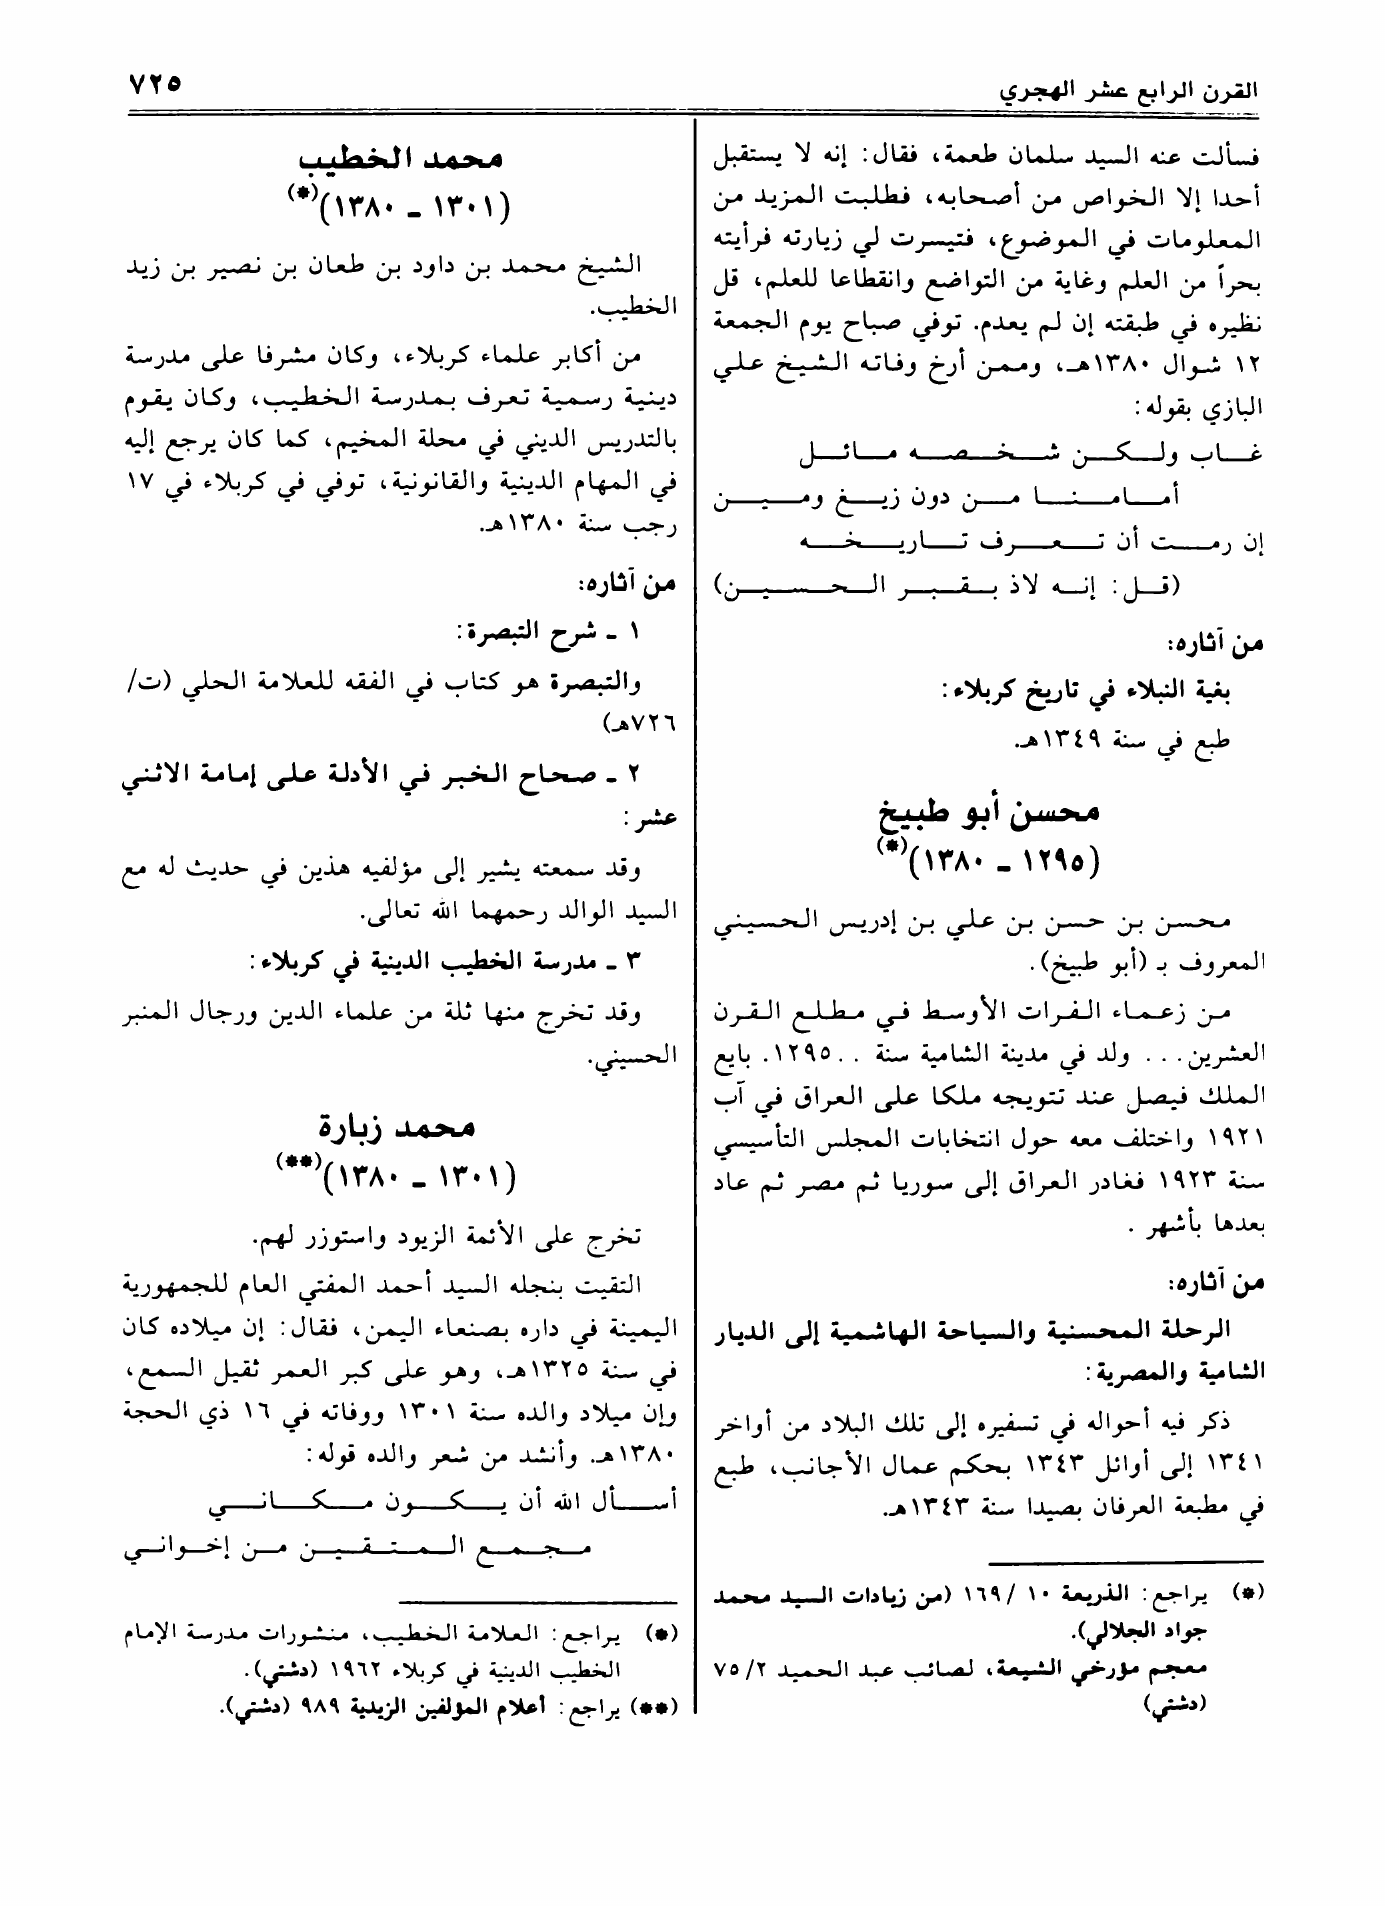 القرن الرابع عشر الهجري
٧٢٥
فسألت عنه السيد سلمان طعمة، فقال: إنه لا يستقبل
أحدا إلا الخواص من أصحابه، فطلبت المزيد من
المعلومات في الموضوع، فتيسرت لي زيارته فرأيته
بحراً من العلم وغاية من التواضع وانقطاعا للعلم، قل
نظيره في طبقته إن لم يعدم. توفي صباح يوم الجمعة
١٢ شوال ١٣٨٠هـ، وممن أرخ وفاته الشيخ علي
البازي بقوله:
غاب ولكن شخصه ماثل
أمامنا من دون زيغ ومين
إن رمت أن تعرف تاريخه
(قل: إنه لاذ بقبر الحسين)
من آثاره:
بغية النبلاء في تاريخ كربلاء:
طبع في سنة ١٣٤٩هـ.
محسن أبو طبيخ
(١٢٩٥ - ١٣٨٠)(*)
محسن بن حسن بن علي بن إدريس الحسيني
المعروف بـ (أبو طبيخ).
من زعماء الفرات الأوسط في مطلع القرن
العشرين... ولد في مدينة الشامية سنة ..١٢٩٥. بايع
الملك فيصل عند تتويجه ملكا على العراق في آب
١٩٢١ واختلف معه حول انتخابات المجلس التأسيسي
سنة ١٩٢٣ فغادر العراق إلى سوريا ثم مصر ثم عاد
بعدها بأشهر .
من آثاره:
الرحلة المحسنية والسياحة الهاشمية إلى الديار
الشامية والمصرية:
ذكر فيه أحواله في تسفيره إلى تلك البلاد من أواخر
١٣٤١ إلى أوائل ١٣٤٣ بحكم عمال الأجانب، طبع
في مطبعة العرفان بصيدا سنة ١٣٤٣هـ.
(*) يراجع: الذريعة ١٠ /١٦٩ (من زيادات السيد محمد
جواد الجلالي).
معجم مؤرخي الشيعة، لصائب عبد الحميد ٢/ ٧٥
(دشتي)
محمد الخطيب
(١٣٠١ - ١٣٨٠)(*)
الشيخ محمد بن داود بن طعان بن نصير بن زيد
الخطيب.
من أكابر علماء كربلاء، وكان مشرفا على مدرسة
دينية رسمية تعرف بمدرسة الخطيب، وكان يقوم
بالتدريس الديني في محلة المخيم، كما كان يرجع إليه
في المهام الدينية والقانونية، توفي في كربلاء في ١٧
رجب سنة ١٣٨٠هـ.
من آثاره:
١ - شرح التبصرة:
والتبصرة هو كتاب في الفقه للعلامة الحلي (ت/
٧٢٦هـ)
٢ - صحاح الخبر في الأدلة على إمامة الاثني
عشر:
وقد سمعته يشير إلى مؤلفيه هذين في حديث له مع
السيد الوالد رحمهما الله تعالى.
٣ - مدرسة الخطيب الدينية في كربلاء:
وقد تخرج منها ثلة من علماء الدين ورجال المنبر
الحسيني.
محمد زبارة
(١٣٠١ - ١٣٨٠)(**)
تخرج على الأئمة الزيود واستوزر لهم.
التقيت بنجله السيد أحمد المفتي العام للجمهورية
اليمينة في داره بصنعاء اليمن، فقال: إن ميلاده كان
في سنة ١٣٢٥هـ، وهو على كبر العمر ثقيل السمع،
وإن ميلاد والده سنة ١٣٠١ ووفاته في ١٦ ذي الحجة
١٣٨٠هـ. وأنشد من شعر والده قوله:
أسأل الله أن يكون مكاني
مجمع المتقين من إخواني
(*) يراجع: العلامة الخطيب، منشورات مدرسة الإمام
الخطيب الدينية في كربلاء ١٩٦٢ (دشتي).
(**) يراجع: أعلام المؤلفين الزيدية ٩٨٩ (دشتي).